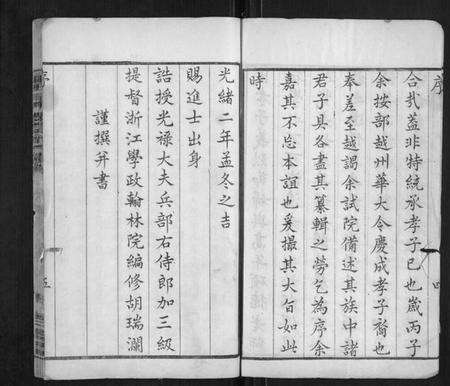 序
合弐葢非特統承孝子已也歲丙子
余按部越州華大令慶成孝子裔也
奉差至越謁余試院備述其族中諸
君子具各盡其纂輯之勞乞為序余
嘉其不忘本誼也爰撮其大旨如此
時
四
光緒二年孟冬之吉
賜進士出身
誥授光禄大夫兵部右侍郎加三級
提督浙江學政翰林院編修胡瑞瀾
謹撰并書
序
五